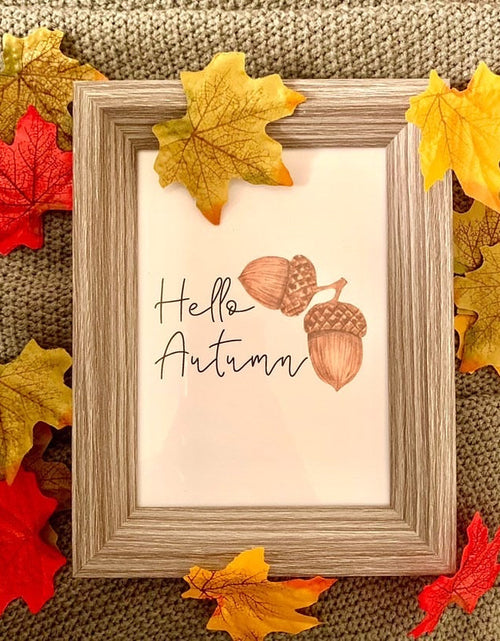 Hello
Autumn